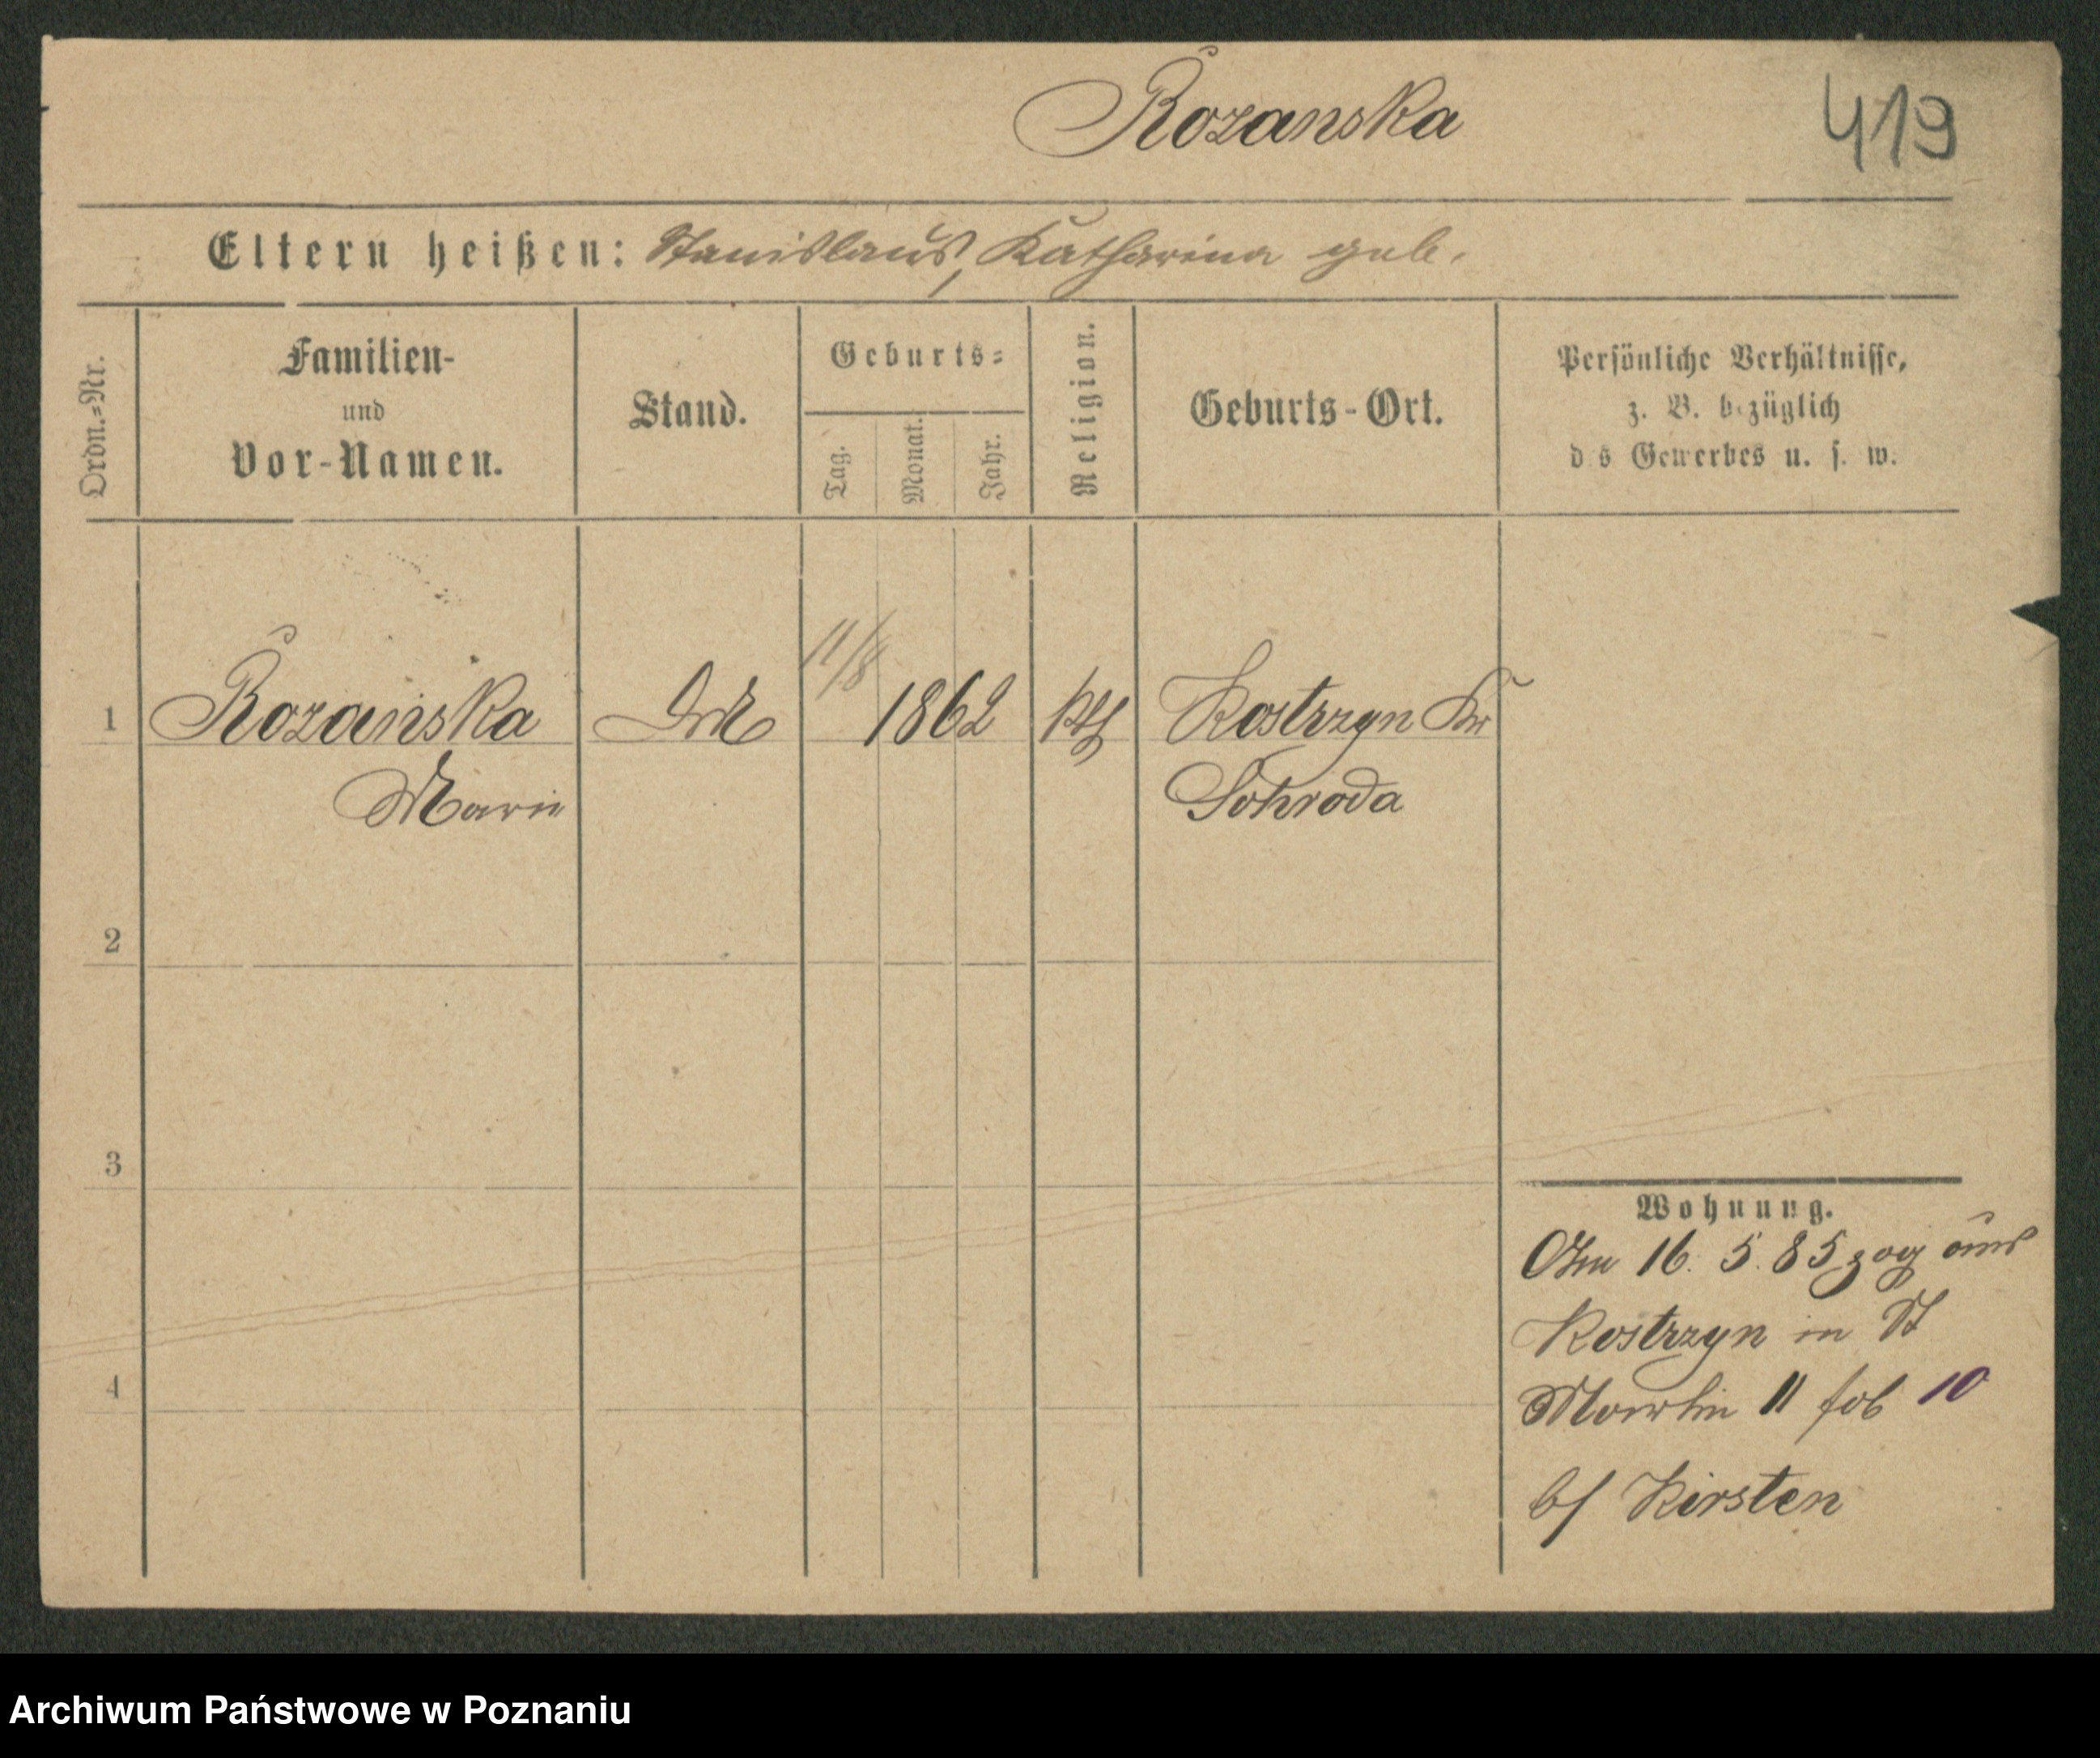 Rozanska
419
Eltern heißen: Stanislaus, Katharina geb.
Ordn.=Nr.
Familien-
und
Vor-Namen.
Stand.
Geburts=
Tag.
Monat.
Jahr.
Religion.
Geburts-Ort.
Persönliche Verhältnisse,
z. B. bezüglich
d s Gewerbes u. s. w.
11/8
1 Rozańska 1862 kth Kostrzyn Kr
Marie Schroda
2
3
4
Wohnung.
Am 16. 5. 85 zog aus
Kostrzyn in St
Martin 11 10
b/ Kirsten
Archiwum Państwowe w Poznaniu